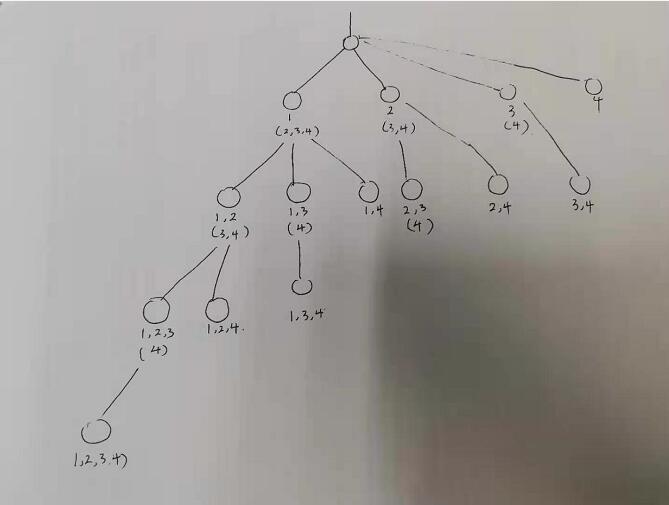 1
(2,3,4)
2
(3,4)
3
(4)
4
1,2
(3,4)
1,3
(4)
1,4
2,3
(4)
2,4
3,4
1,2,3
(4)
1,2,4.
1,3,4
1,2,3,4)